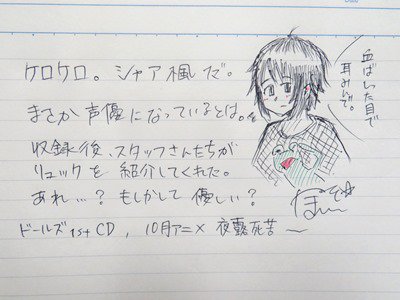 ケロケロ。シャア楓だ。
まさか声優になっているとは。
収録後、スタッフさんたちが
リュックを紹介してくれた。
あれ…?もしかして優しい?
ドールズ1st CD, 10月アニメ 夜露死苦〜
血ばしった目で